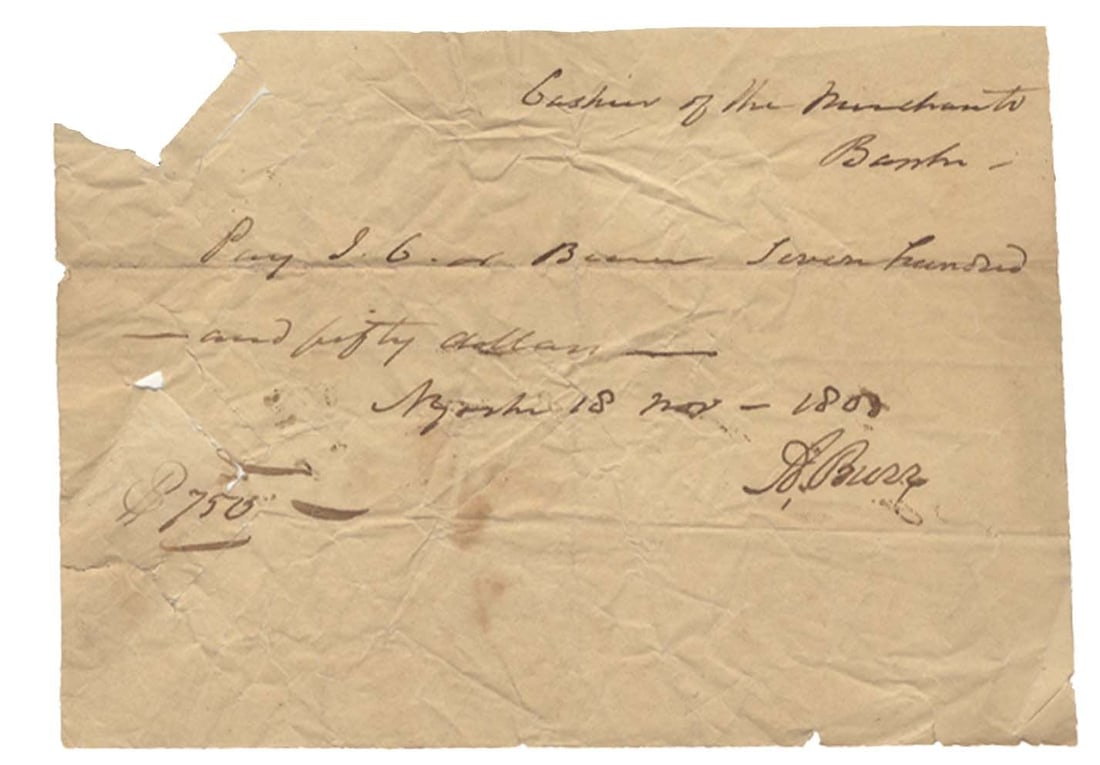 Cashier of the Merchants
Bank –
Pay I. C. or Bearer Seven hundred
— and fifty dollars —
NYork 18 Nov – 1808
A. Burr
$ 750 —